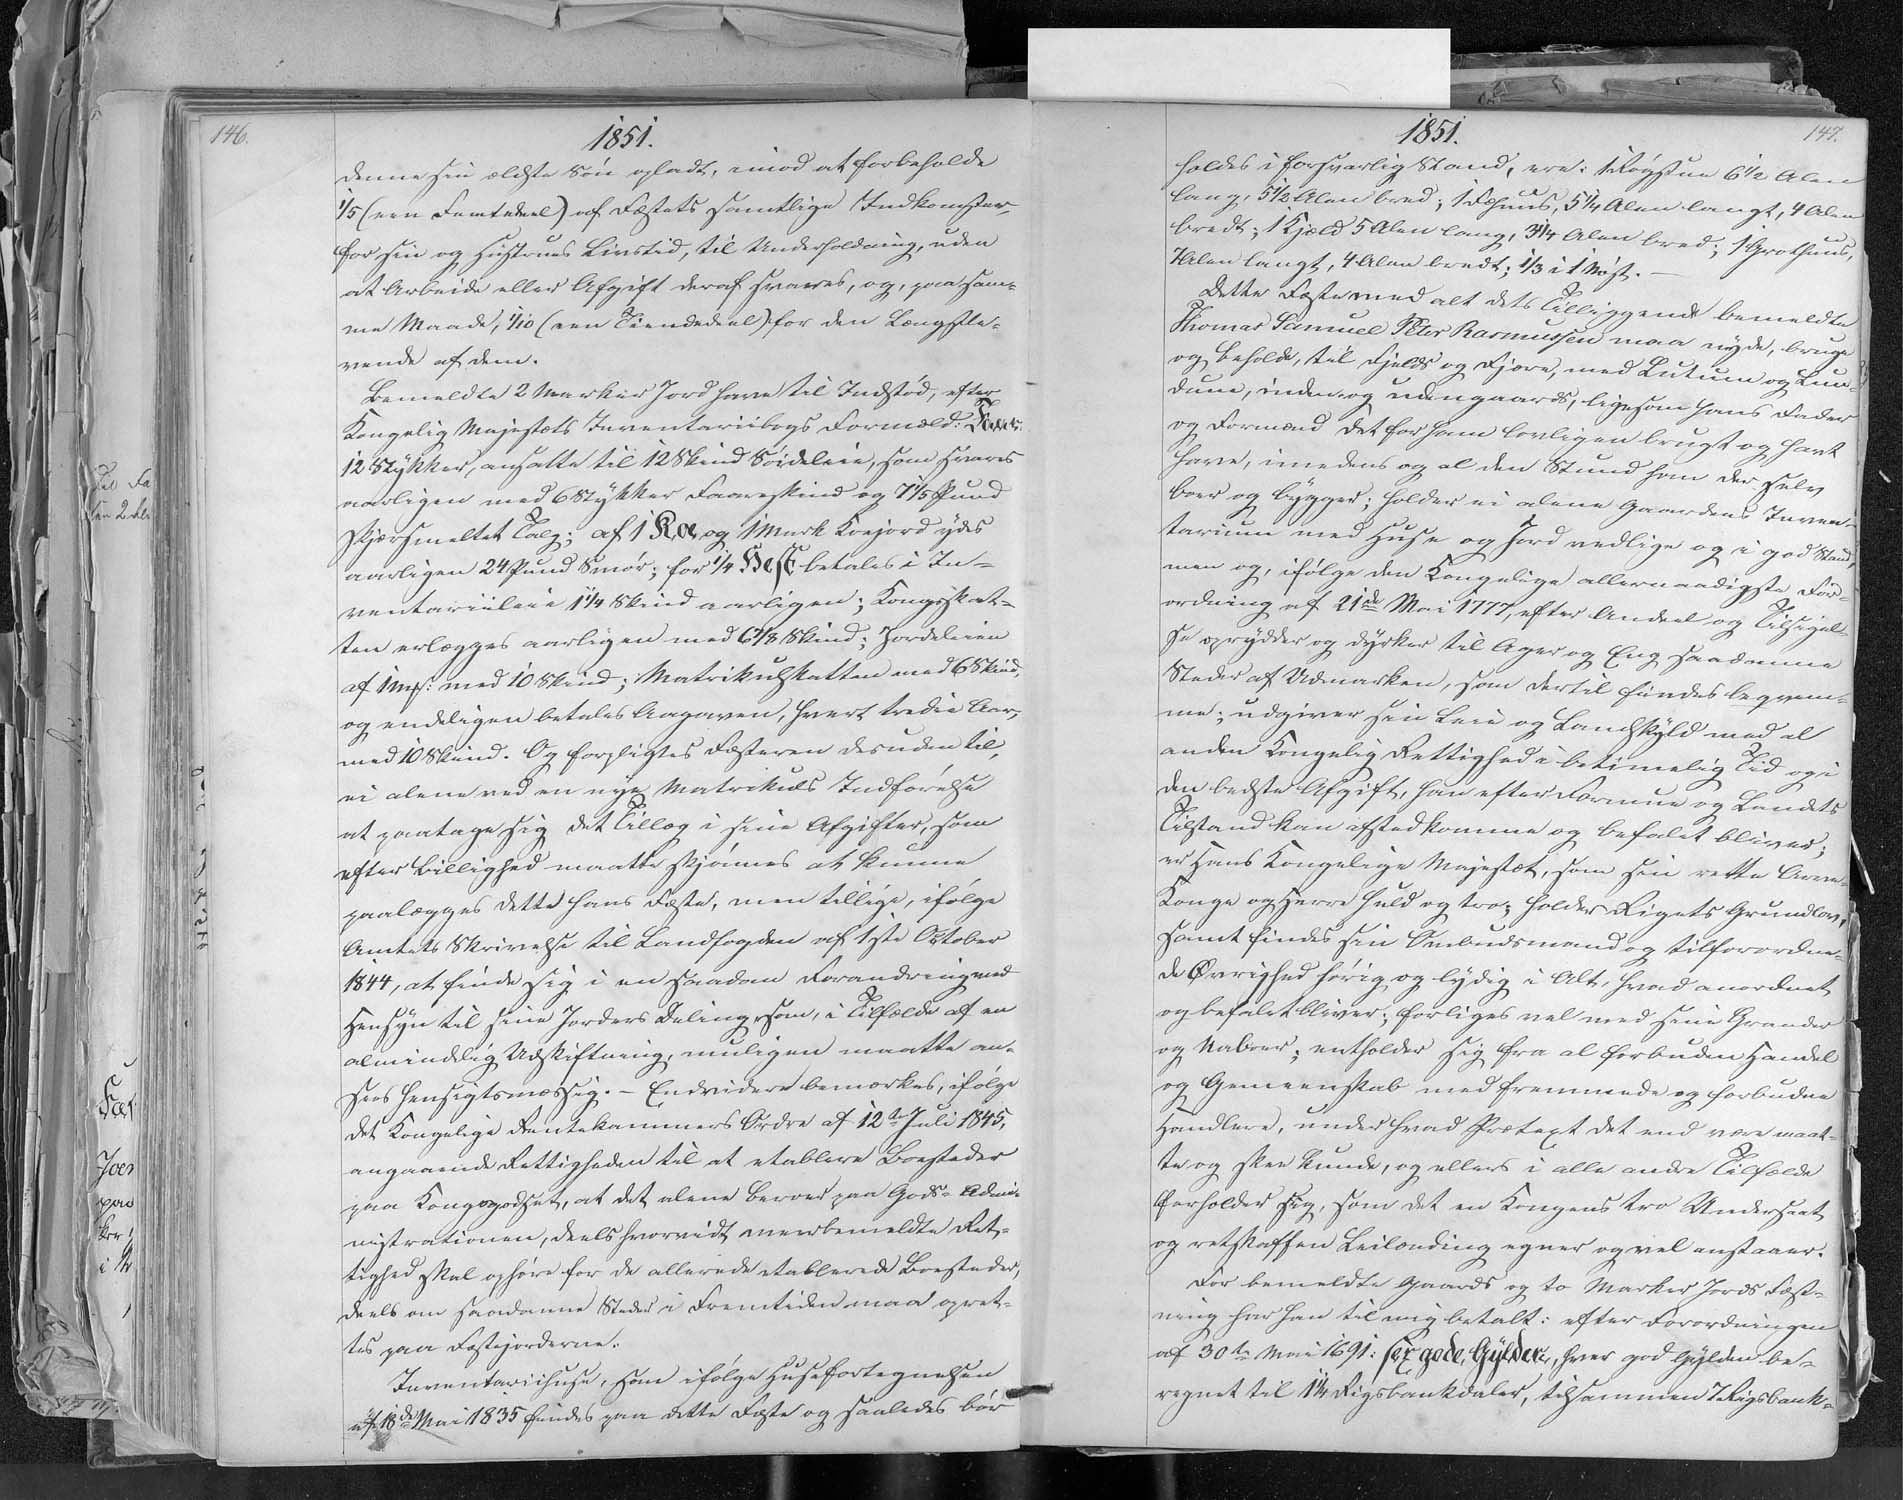 146.
1851.
denne sin ældste Søn opladt, imod at forbeholde
1/5 (een Femtedeel) af Fæstets samtlige Indkomster,
for sin og Hustrues Livstid, til Underholdning, uden
at Arbeide eller Afgift deraf svares, og, paa sam-
me Maade, 1/10 (een Tiendedeel) for den Længstle-
vende af dem.
Bemeldte 2 Marker Jord have til Indstød, efter
Kongelig Majestæts Inventariibogs Formæld:
12 Stykker, ansatte til 12 Skind Søideleie, som svares
aarligen med 6 Stykker Faareskind og 7 1/5 Pund
skjærsmeltet Talg; af 1 Ko og 1 Mark Koejord ydes
aarligen 24 Pund Smør; for 1/4 Hest betales i In-
ventariileie 1 1/4 Skind aarligen; Kongsskat-
ten erlægges aarligen med 6 7/8 Skind; Jordeleien
af 1 Mrk: med 10 Skind; Matrikulskatten med 6 Skind,
og endeligen betales Aagaven, hvert tredie Aar,
med 10 Skind. Og forpligtes Fæsteren desuden til,
ei alene ved en nye Matrikuls Indførelse
at paatage sig det Tillæg i sine Afgifter, som
efter Billighed maatte skjønnes at kunne
paalægges dette hans Fæste, men tillige, ifølge
Amtets Skrivelse til Landfogden af 1ste October
1844, at finde sig i en saadan Forandring med
Hensyn til sine Jorders Deling, som, i Tilfælde af en
almindelig Udskiftning, muligen maatte an-
sees hensigtsmæssig. - Endvidere bemærkes, ifølge
det Kongelige Rentekammers Ordre af 12te Juli 1845,
angaaende Rettigheden til at etablere Boesteder
paa Kongsgodset, at det alene beroer paa Gods-Admi-
nistrationen, deels hvorvidt meerbemeldte Ret-
tighed skal ophøre for de allerede etablerede Boesteder,
deels om saadanne Steder i Fremtiden maa opret-
tes paa Fæstejorderne.
Inventariihuse, som ifølge Husefortegnelsen
af 18de Mai 1835 findes paa dette Fæste og saaledes bør
1851.
147.
holdes i forsvarlig Stand, ere: 1 Røgstue 6 1/2 Alen
lang, 5 1/2 Alen bred; 1 Fæhuus, 5 1/4 Alen langt, 4 Alen
bredt; 1 Kjeld 5 Alen lang, 3 1/4 Alen bred; 1 Grothuus,
7 Alen langt, 4 Alen bredt; 1/3 i 1 Nøst. -
Dette Fæste med alt dets Tilliggende bemeldte
Thomas Samuel Peter Rasmussen maa nyde, bruge
og beholde, til Fjelds og Fjære, med Lutum og Lun-
dum, inden- og udengaards, ligesom hans Fader
og Formænd det for ham lovligen brugt og havt
have, imedens og al den Stund han der selv
boer og bygger; holder ei alene Gaardens Inven-
tarium med Huse og Jord vedlige og i god Stand,
men og, ifølge den Kongelige allernaadigste For-
ordning af 21de Mai 1777, efter Andeel og Tilsigel-
se oprydder og dyrker til Ager og Eng saadanne
Steder af Udmarken, som dertil findes beqvem-
me; udgiver sin Leie og Landskyld med al
anden Kongelig Rettighed i betimelig Tid og i
den bedste Afgift, han efter Formue og Landets
Tilstand kan afstedkomme og befalet bliver;
er Hans Kongelige Majestæt, som sin rette Arve-
Konge og Herre huld og tro; holder Rigets Grundlov,
samt findes sin Ombudsmand og tilforordne-
de Øvrighed hørig og lydig i Alt, hvad anordnet
og befalet bliver; forliges vel med sine Grander
og Naboer; entholder sig fra al forbuden Handel
og Gemeenskab med fremmede og forbudne
Handlere, under hvad Prætext det end være maat-
te og skee kunde, og ellers i alle andre Tilfælde
forholder sig, som det en Kongens tro Undersaat
og retskaffen Leilænding egner og vel anstaaer.
For bemeldte Gaards og to Marker Jords Fæst-
ning har han til mig betalt: efter Forordningen
af 30te Mai 1691: sex gode Gylden, hver god Gylden be-
regnet til 1 1/4 Rigsbankdaler, tilsammen 7 Rigsbank-